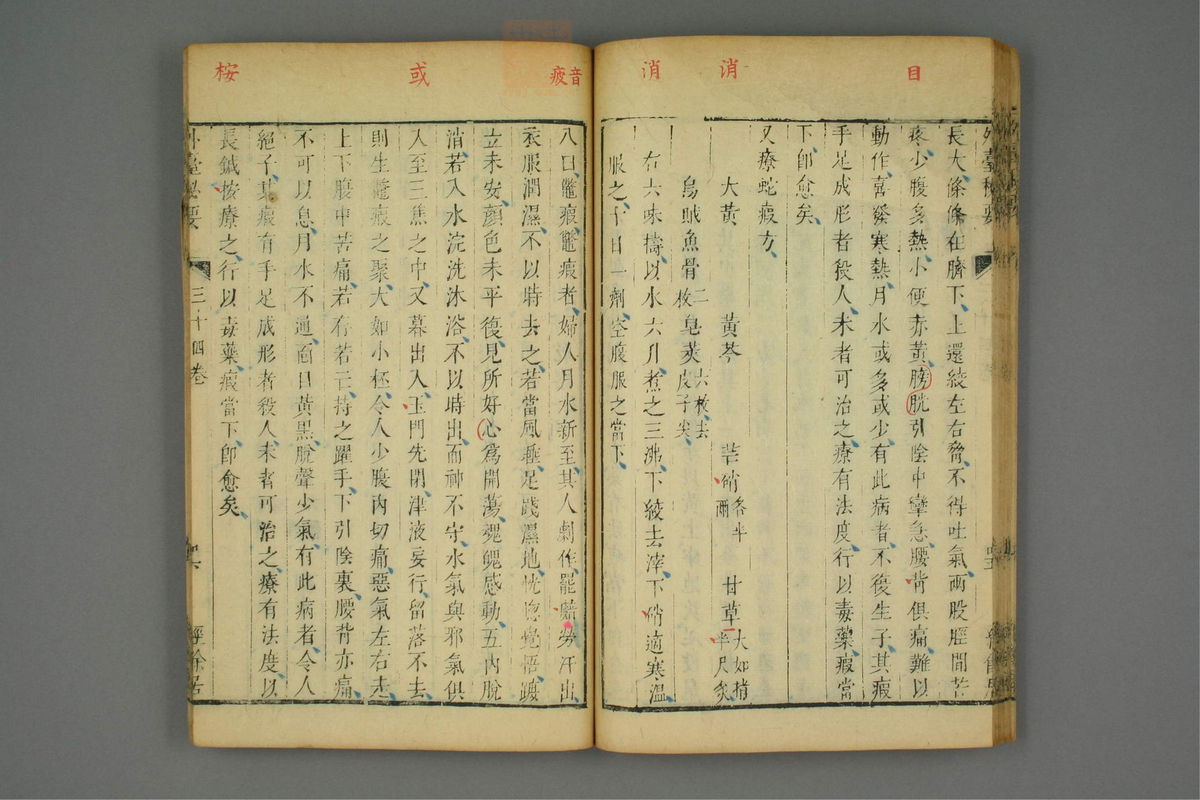 目
消
消
長大條條在臍下上還綾左右脅不得吐氣兩股脛間苦
疼少腹多熱小便赤黃膀胱引陰中攣急腰背俱痛難以
動作喜發寒熱月水或多或少有此病者不復生子其瘕
手足成形者殺人未者可治之療有法度行以毒藥瘕當
下卽愈矣
又療蛇瘕方
大黃 黃芩 芒硝各半兩 甘草大如指半尺炙
烏賊魚骨二枚 皂莢六枚去皮子尖
右六味擣以水六升煮之三沸下綾去滓下硝適寒溫
服之十日一劑空腹服之當下
音疲
或
桉
八曰鼈瘕鼈瘕者婦人月水新至其人劇作罷勞汗出
衣服潤濕不以時去之若當風睡足踐濕地恍惚覺悟躧
立未安顏色未平復見所好心爲開蕩魂魄感動五內脫
消若入水浣洗沐浴不以時出而神不守水氣與邪氣俱
入至三焦之中又暮出入玉門先閉津液妄行留落不去
則生鼈瘕之聚大如小柸令人少腹內切痛惡氣左右走
上下腹中苦痛若存若亡持之躍手下引陰裏腰背亦痛
不可以息月水不通面目黃黑脫聲少氣有此病者令人
絕子其瘕有手足成形者殺人未者可治之療有法度以
長鍼按療之行以毒藥瘕當下卽愈矣
外臺秘要
三十四卷
經餘居